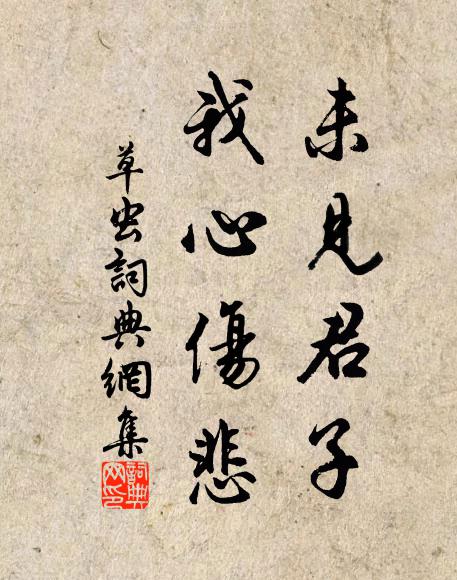 未見君子
我心傷悲
草虫詞典網集
詞典网印